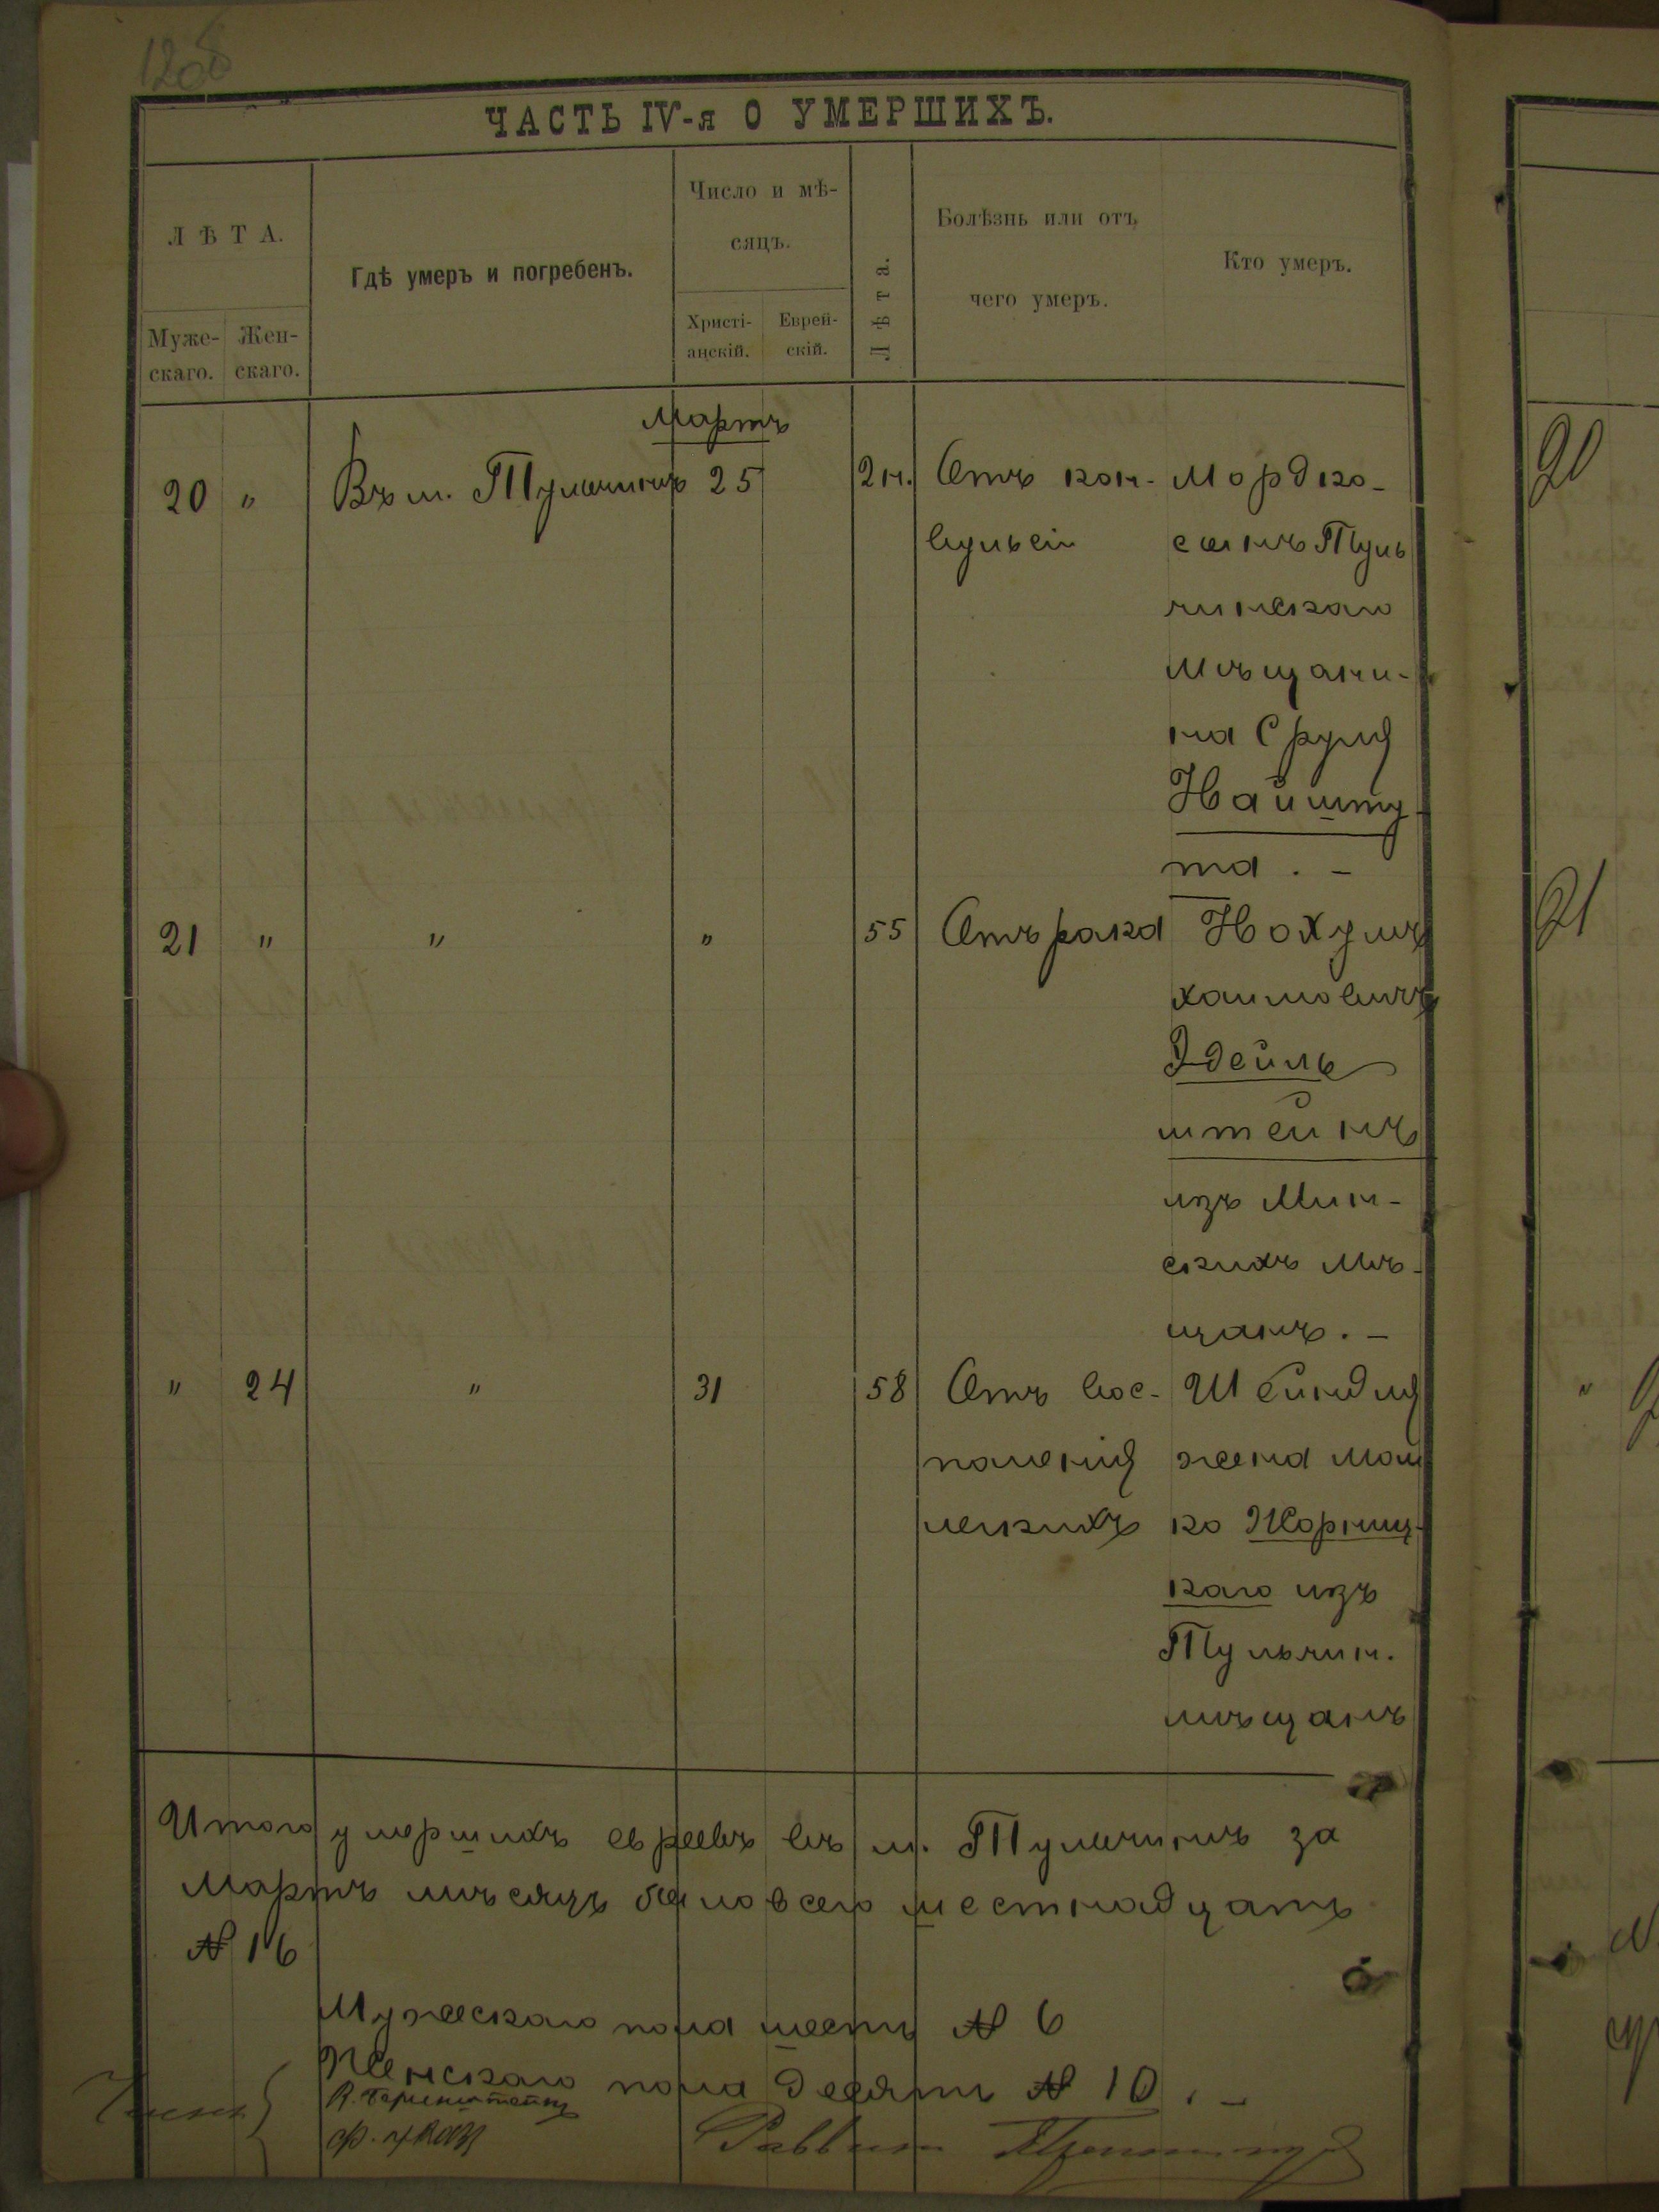 1208
ЧАСТЬ IV-я О УМЕРШИХЪ.
ЛѢТА.
Муже-
скаго.
Жен-
скаго.
Гдѣ умеръ и погребенъ.
Число и мѣ-
сяцъ.
Христі-
анскій.
Еврей-
скій.
Лѣта.
Болѣзнь или отъ
чего умеръ.
Кто умеръ.
Мартъ
20 " Въ м. Тульчинѣ 25 2 н. Отъ кон- Мордко-
вульсіи сынъ Туль
чинскаго
мѣщани-
на Сруля
Найшту-
та. -
21 " " " 55 Отъ рака Нохумъ
Хаимовичъ
Эдейль
штейнъ
изъ Мин-
скихъ мѣ-
щанъ. -
" 24 " 31 58 Отъ вос- Шейндля
паленія жена Мош
легкихъ ко Жорниц-
каго изъ
Тульчин.
мѣщанъ
Итого умершихъ евреевъ въ м. Тульчинѣ за
Мартъ мѣсяцъ было всего шестнадцать
№ 16
Мужескаго пола шесть № 6
Женскаго пола десять № 10. -
Раввинъ
20
21
"